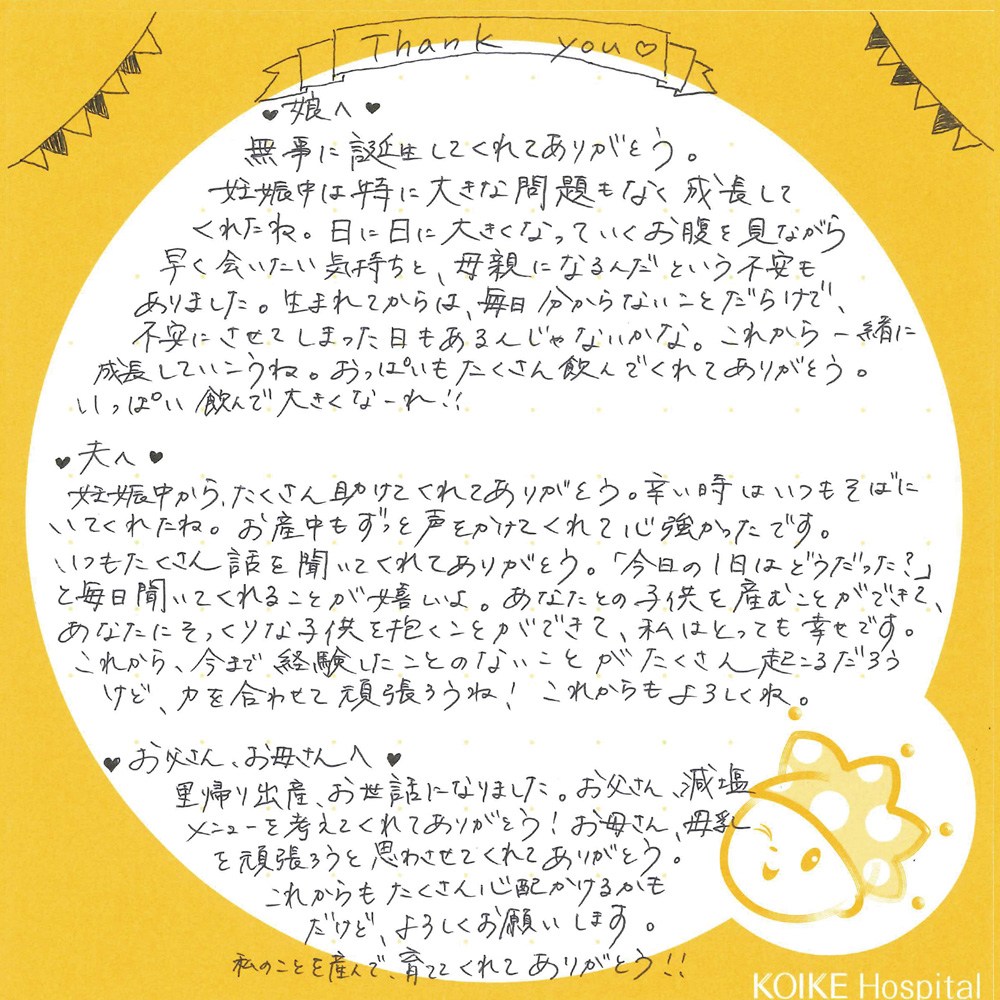 Thank you♡
♥娘へ♥
無事に誕生してくれてありがとう。
妊娠中は特に大きな問題もなく成長して
くれたね。日に日に大きくなっていくお腹を見ながら
早く会いたい気持ちと、母親になるんだという不安も
ありました。生まれてからは、毎日分からないことだらけで、
不安にさせてしまった日もあるんじゃないかな。これから一緒に
成長していこうね。おっぱいもたくさん飲んでくれてありがとう。
いっぱい飲んで大きくなーれ!!
♥夫へ♥
妊娠中から、たくさん助けてくれてありがとう。辛い時はいつもそばに
いてくれたね。お産中もずっと声をかけてくれて心強かったです。
いつもたくさん話を聞いてくれてありがとう。「今日の1日はどうだった?」
と毎日聞いてくれることが嬉しいよ。あなたとの子供を産むことができて、
あなたにそっくりな子供を抱くことができて、私はとっても幸せです。
これから、今まで経験したことのないことがたくさん起こるだろう
けど、力を合わせて頑張ろうね! これからもよろしくね。
♥お父さん、お母さんへ♥
里帰り出産、お世話になりました。お父さん、減塩
メニューを考えてくれてありがとう!お母さん、母乳
を頑張ろうと思わさせてくれてありがとう。
これからもたくさん心配かけるかも
だけど、よろしくお願いします。
私のことを産んで、育ててくれてありがとう!!
KOIKE Hospital